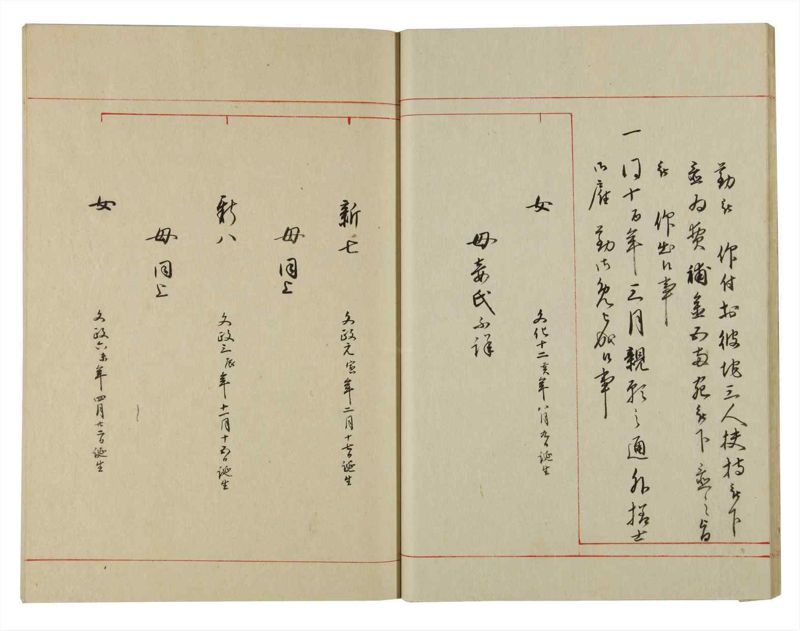 勤被 仰付於彼地三人扶持被下
為費補金両宛被下
被 仰出候事
一 同十百年三月親願之通外様士
御雇勤御免被仰候事
女
文化十二亥年八月九日誕生
母妾氏不詳
新七
文政元寅年二月十七日誕生
母同上
新八
文政三辰年十一月十五日誕生
母同上
女
文政六未年四月十二日誕生